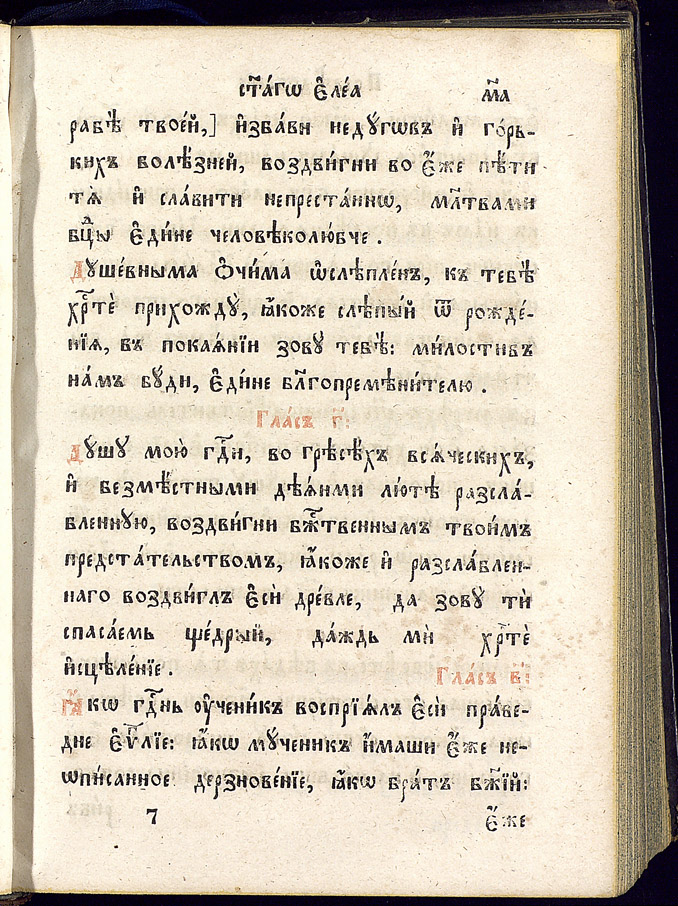 ст҃а́гѡ є҆ле́а м҃а
рабѣ̀ твое́й,] и҆зба́ви недꙋ́гѡвъ и҆ го́рь-
кихъ волѣ́зней, воздви́гни во є҆́же пѣ́ти
тѧ̀ и҆ сла́вити непреста́ннѡ, мл҃твами
бц҃ы є҆ди́не человѣколю́бче.
Дꙋше́вныма ѻ҆чи́ма ѡ҆слѣпле́нъ, къ тебѣ̀
хр҃тѐ прихождꙋ̀, ꙗ҆́коже слѣпы́й ѿ рожде́-
нїѧ, въ покаѧ́нїи зовꙋ̀ тебѣ̀: ми́лостивъ
на́мъ бꙋ́ди, є҆ди́не бл҃гопремѣни́телю.
Гла́съ г҃:
Дꙋ́шꙋ мою̀ гдⷭ҇и, во грѣсѣ́хъ всѧ́ческихъ,
и҆ безмѣ́стными дѣѧ́ньми лю́тѣ разсла́-
бленнꙋю, воздви́гни бж҃твеннымъ твои́мъ
предста́тельствомъ, ꙗ҆́коже и҆ разсла́блен-
наго воздви́глъ є҆сѝ дре́вле, да зовꙋ̀ тѝ
спаса́емь ще́дрый, да́ждь мѝ хр҃тѐ
и҆сцѣле́нїе. Гла́съ в҃:
Ꙗ҆́кѡ гдⷭ҇нь ᲂу҆чени́къ воспрїѧ́лъ є҆сѝ пра́ве-
дне є҆ѵⷢ҇лїе: ꙗ҆́кѡ мꙋ́ченикъ и҆́маши є҆́же не-
ѡ҆пи́санное дерзнове́нїе, ꙗ҆́кѡ бра́тъ бж҃їй:
7 є҆́же